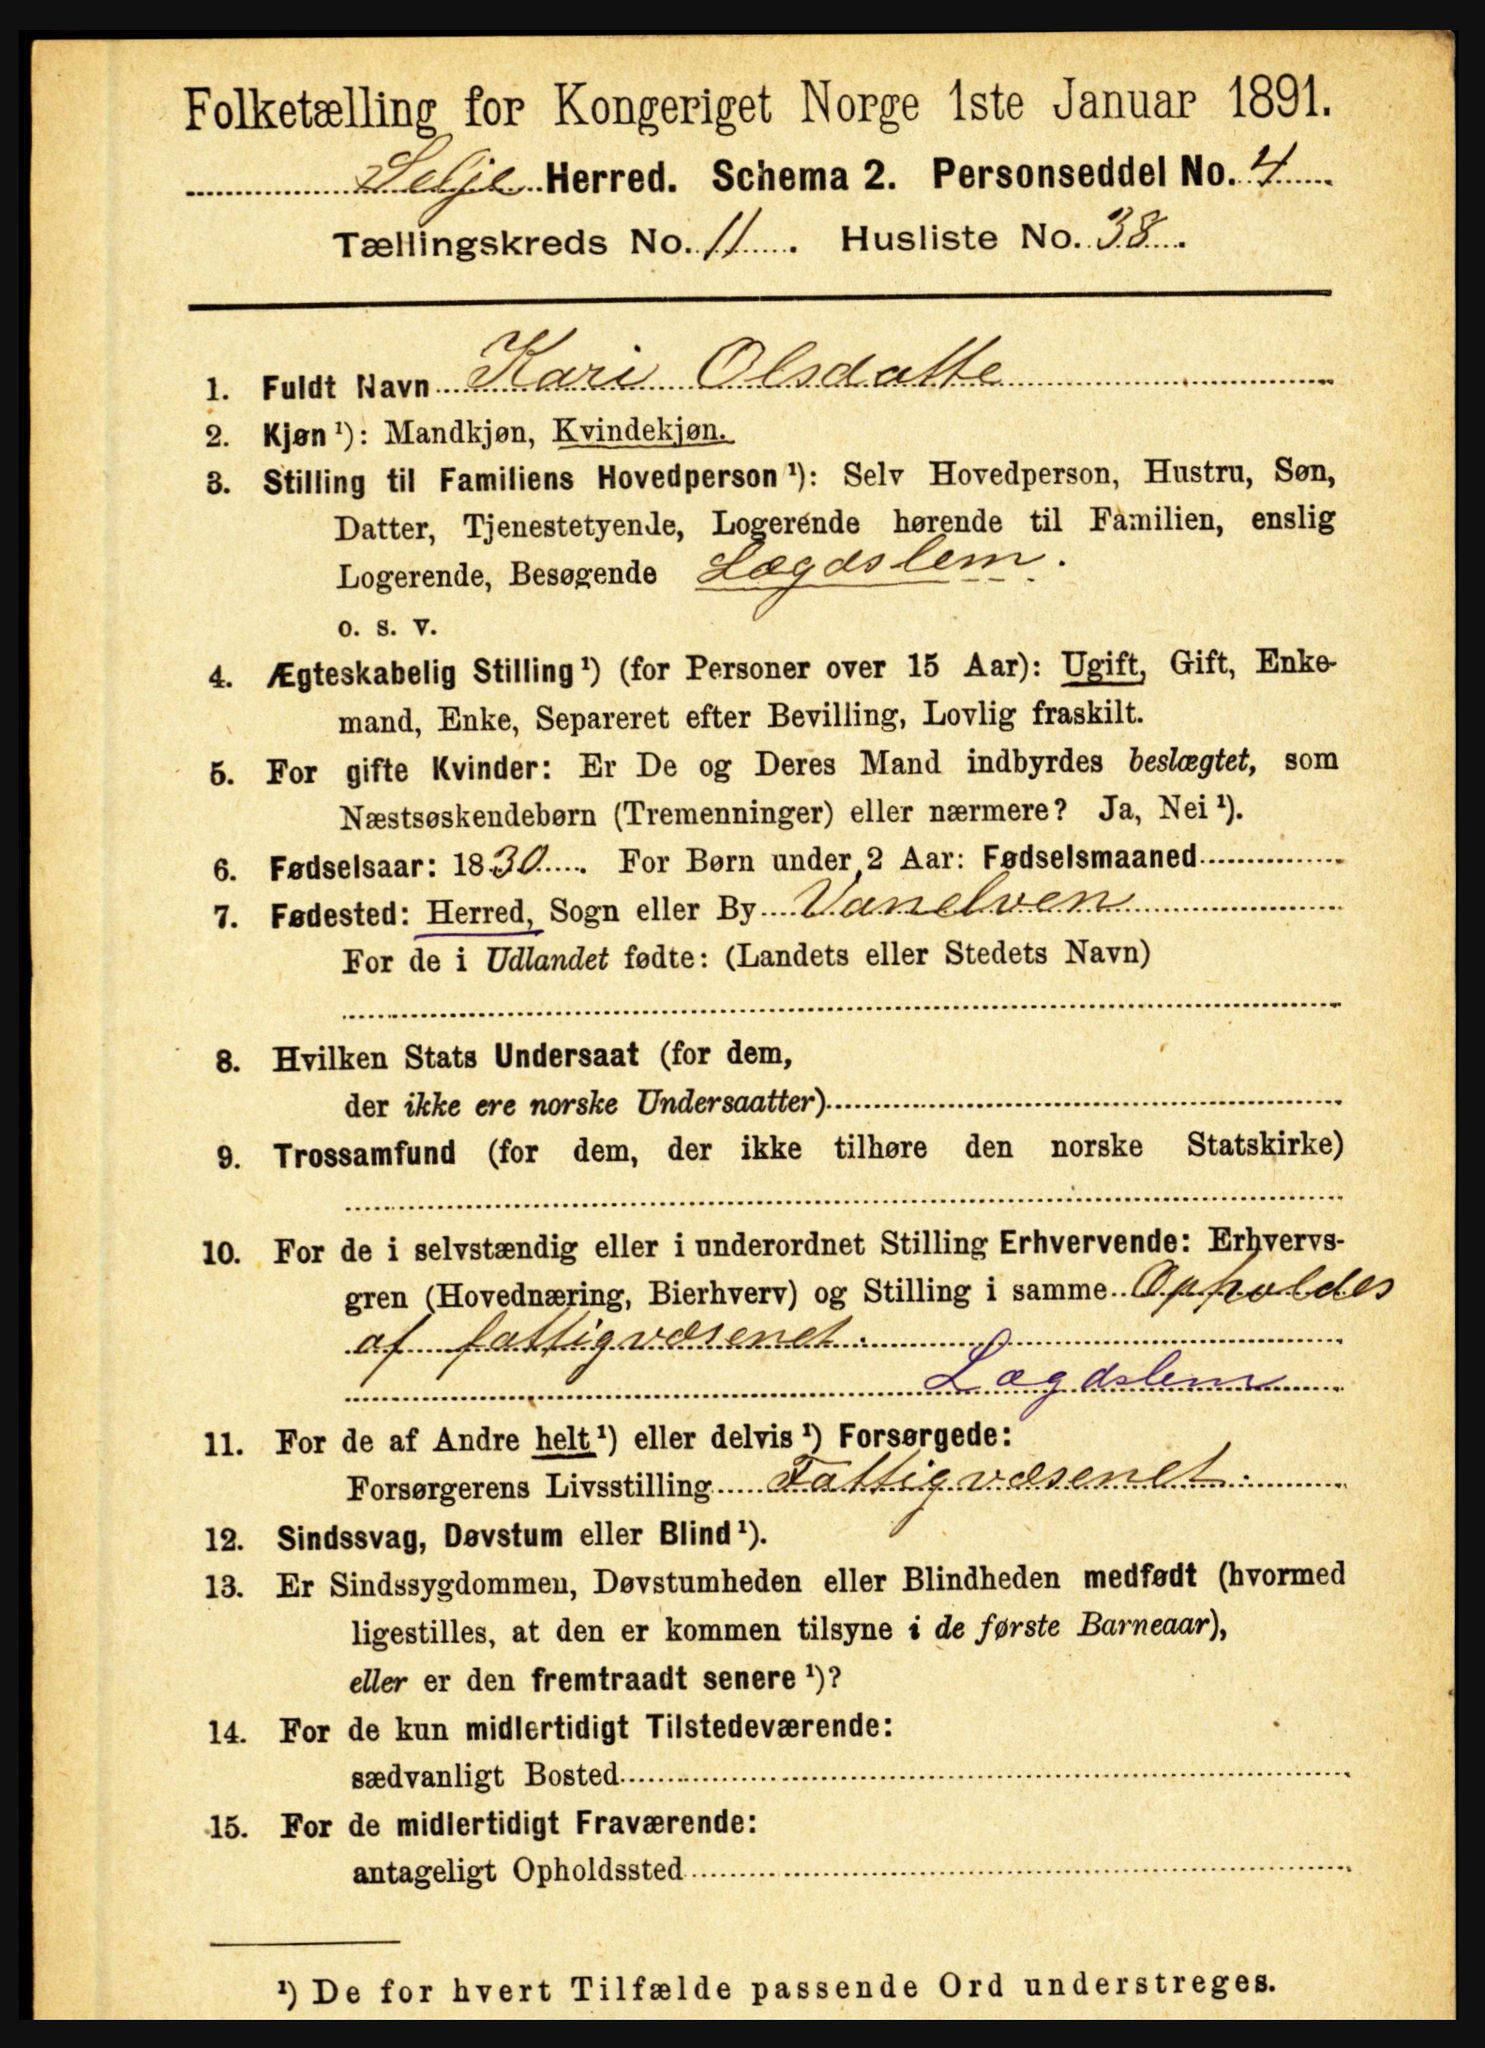 Folketælling for Kongeriget Norge 1ste Januar 1891.
Selje Herred. Schema 2. Personseddel No. 4
Tællingskreds No. 11. Husliste No. 38.
1. Fuldt Navn Kari Olsdatte
2. Kjøn ¹): Mandkjøn, Kvindekjøn.
3. Stilling til Familiens Hovedperson ¹): Selv Hovedperson, Hustru, Søn,
Datter, Tjenestetyende, Logerende hørende til Familien, enslig
Logerende, Besøgende Lægdslem.
o. s. v.
4. Ægteskabelig Stilling ¹) (for Personer over 15 Aar): Ugift, Gift, Enke-
mand, Enke, Separeret efter Bevilling, Lovlig fraskilt.
5. For gifte Kvinder: Er De og Deres Mand indbyrdes beslægtet, som
Næstsøskendebørn (Tremenninger) eller nærmere? Ja, Nei ¹).
6. Fødselsaar: 1830. For Børn under 2 Aar: Fødselsmaaned
7. Fødested: Herred, Sogn eller By Vanelven
For de i Udlandet fødte: (Landets eller Stedets Navn)
8. Hvilken Stats Undersaat (for dem,
der ikke ere norske Undersaatter)
9. Trossamfund (for dem, der ikke tilhøre den norske Statskirke)
10. For de i selvstændig eller i underordnet Stilling Erhvervende: Erhvervs-
gren (Hovednæring, Bierhverv) og Stilling i samme Opholdes
af fattigvæsenet.
Lægdslem
11. For de af Andre helt ¹) eller delvis ¹) Forsørgede:
Forsørgerens Livsstilling Fattigvæsenet.
12. Sindssvag, Døvstum eller Blind ¹).
13. Er Sindssygdommen, Døvstumheden eller Blindheden medfødt (hvormed
ligestilles, at den er kommen tilsyne i de første Barneaar),
eller er den fremtraadt senere ¹)?
14. For de kun midlertidigt Tilstedeværende:
sædvanligt Bosted
15. For de midlertidigt Fraværende:
antageligt Opholdssted
¹) De for hvert Tilfælde passende Ord understreges.